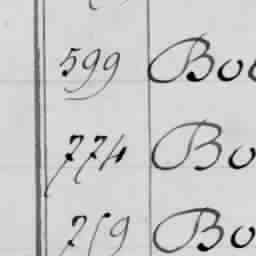 599 Bo
774 Bo
759 Bo